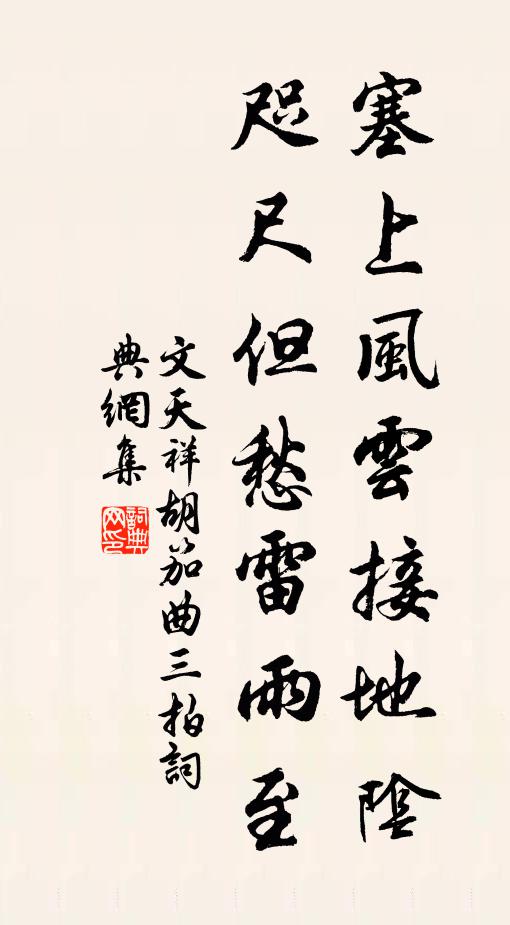 塞上風雲接地陰
咫尺但愁雷雨至
文天祥胡笳曲三拍詞
典網集
詞典網印